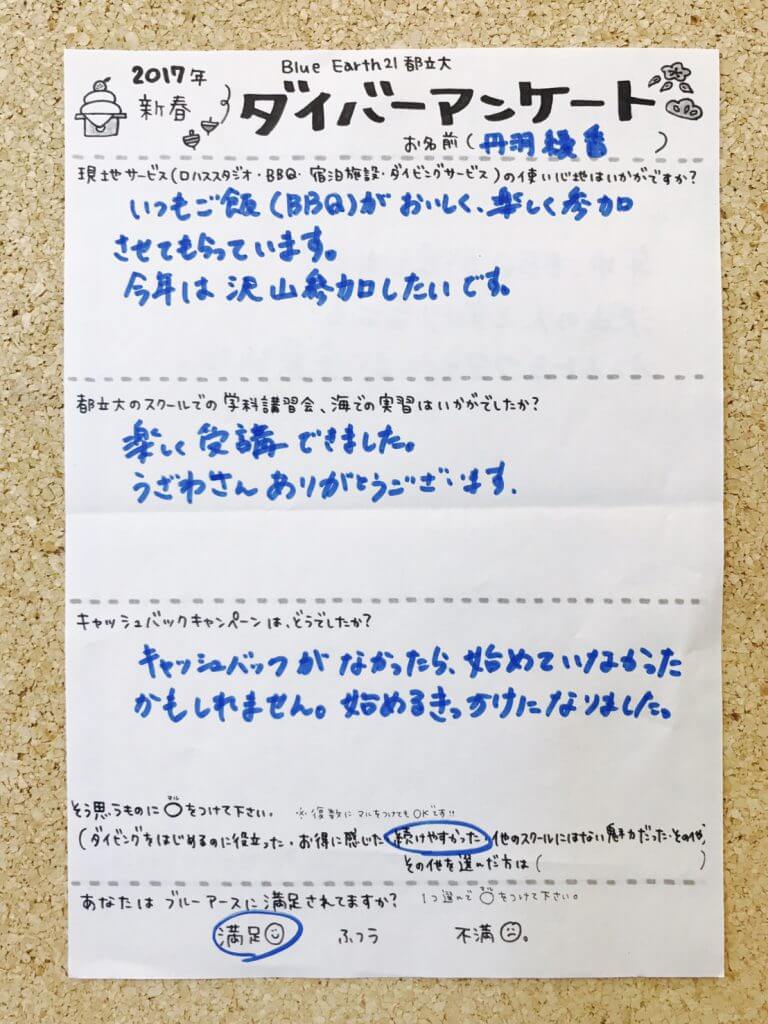 2017年
新春
Blue Earth21 都立大
ダイバーアンケート
お名前(丹羽綾香)
現地サービス(ロハススタジオ・BBQ・宿泊施設・ダイビングサービス)の使い心地はいかがですか?
いつもご飯(BBQ)がおいしく、楽しく参加
させてもらっています。
今年は沢山参加したいです。
都立大のスクールでの学科講習会、海での実習はいかがでしたか?
楽しく受講できました。
うざわさんありがとうございます.
キャッシュバックキャンペーンは、どうでしたか?
キャッシュバックがなかったら、始めていなかった
かもしれません。始めるきっかけになりました。
そう思うものに○マルをつけて下さい。 ※複数にマルをつけてもOKです!!
(ダイビングをはじめるのに役立った・お得に感じた・続けやすかった・他のスクールにはない魅力だった・その他)
その他を選んだ方は( )
あなたはブルーアースに満足されてますか? 1つ選んで○をつけて下さい。
満足 ふつう 不満。